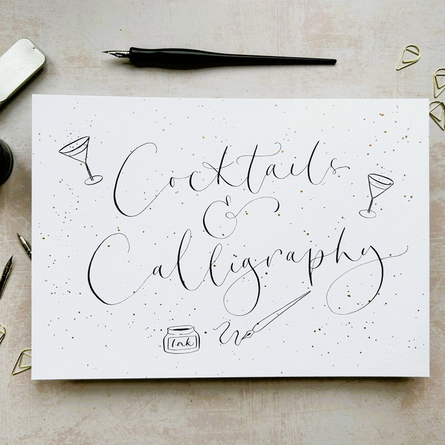 Cocktails
&
Calligraphy
Ink